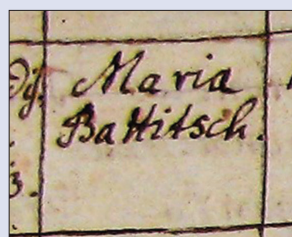 Maria
Battitsch.